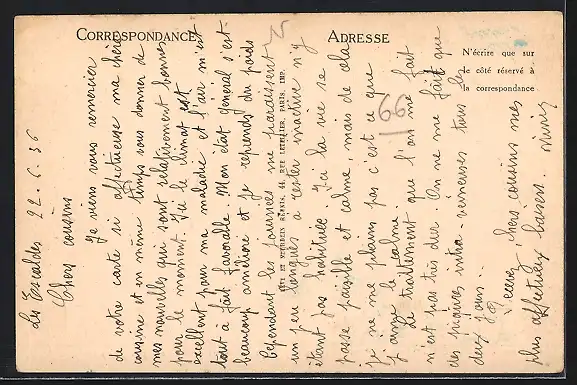 CORRESPONDANCE
ADRESSE
N'écrire que sur
le côté réservé à
la correspondance
Les Escaldes 22. 6. 36
Chers cousins
Je viens vous remercier
de votre carte si affectueuse ma chère
cousine et en même temps vous donner de
mes nouvelles qui sont relativement bonnes
pour le moment. Ici le climat est
excellent pour ma maladie et l'air m'est
tout à fait favorable. Mon état général s'est
beaucoup amélioré et je reprends du poids
Cependant les journées me paraissent
un peu longues à rester inactive n'y
étant pas habituée. Ici la vie se
passe paisible et calme, mais de cela
je ne me plains pas c'est ce que
j'aime le calme.
Le traitement que l'on me fait
n'est pas très dur. On ne me fait que
des piqûres intra-veineuses tous les
deux jours.
Recevez, chers cousins mes
plus affectueux baisers.
166
RUE LETELLIER, PARIS, IMP.